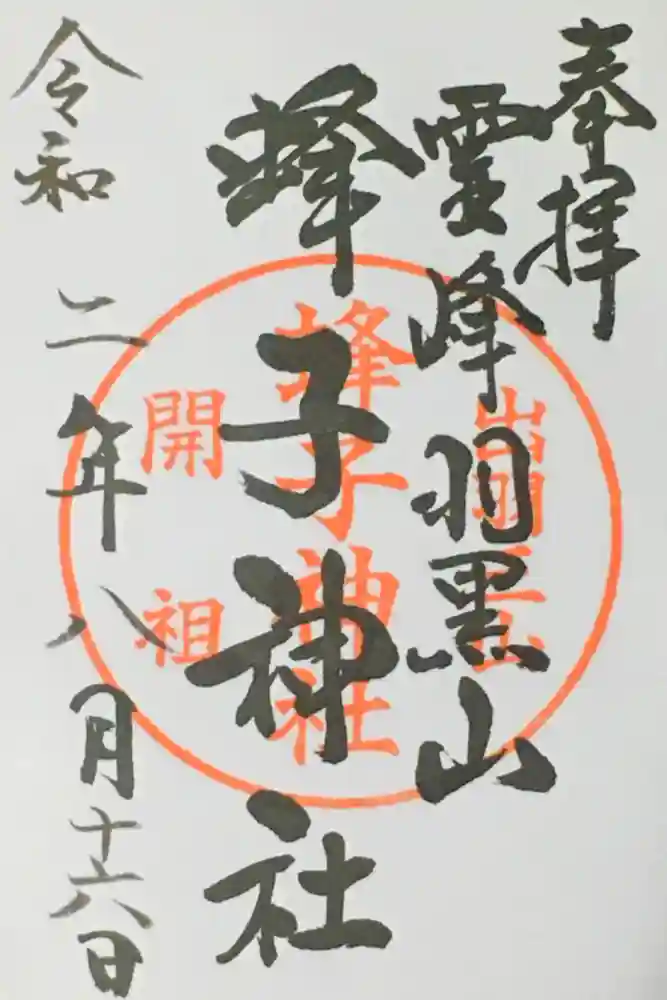 奉拝
霊峰羽黒山
蜂子神社
令和二年八月十六日
蜂子神社
開祖